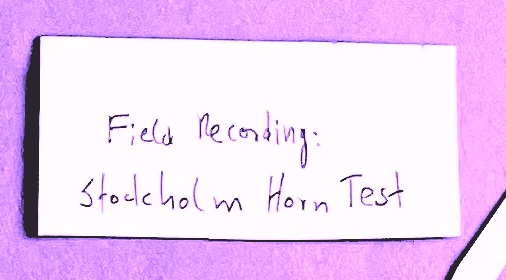 Field Recording:
Stockholm Horn Test